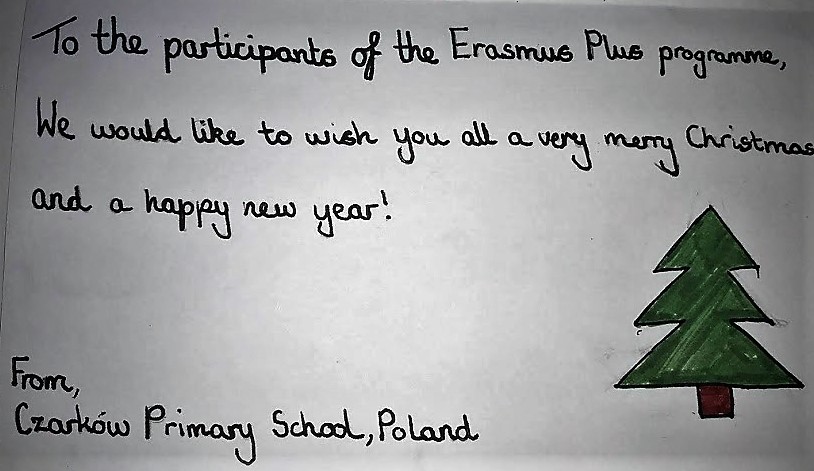 To the participants of the Erasmus Plus programme,
We would like to wish you all a very merry Christmas
and a happy new year!
From,
Czarków Primary School, Poland